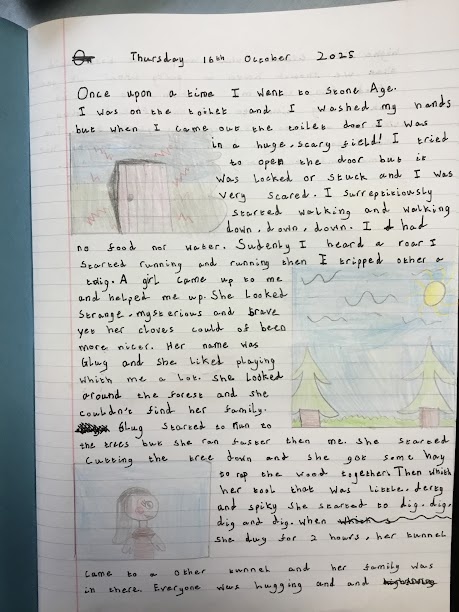 Thursday 16th October 2025
Once upon a time I went to Stone Age.
I was on the toilet and I washed my hands
but when I came out the toilet door I was
in a huge, scary field! I tried
to open the door but it
was locked or stuck and I was
very scared. I surreptitiously
started walking and walking
down, down, down. I had
no food nor water. Sudenly I heard a roar I
started running and running then I tripped other a
twig. A girl came up to me
and helped me up. She looked
strange, mysterious and brave
yet her cloves could of been
more nicer. Her name was
Glug and she liked playing
whith me a lot. She looked
around the forest and she
couldn't find her family.
Glug started to run to
the trees but she ran faster then me. She started
cutting the tree down and she got some hay
to rap the wood together. Then whith
her tool that was little, derty
and spiky she started to dig, dig,
dig and dig. When
she dug for 2 hours, her tunnel
came to a other tunnel and her family was
in there. Everyone was hugging and and